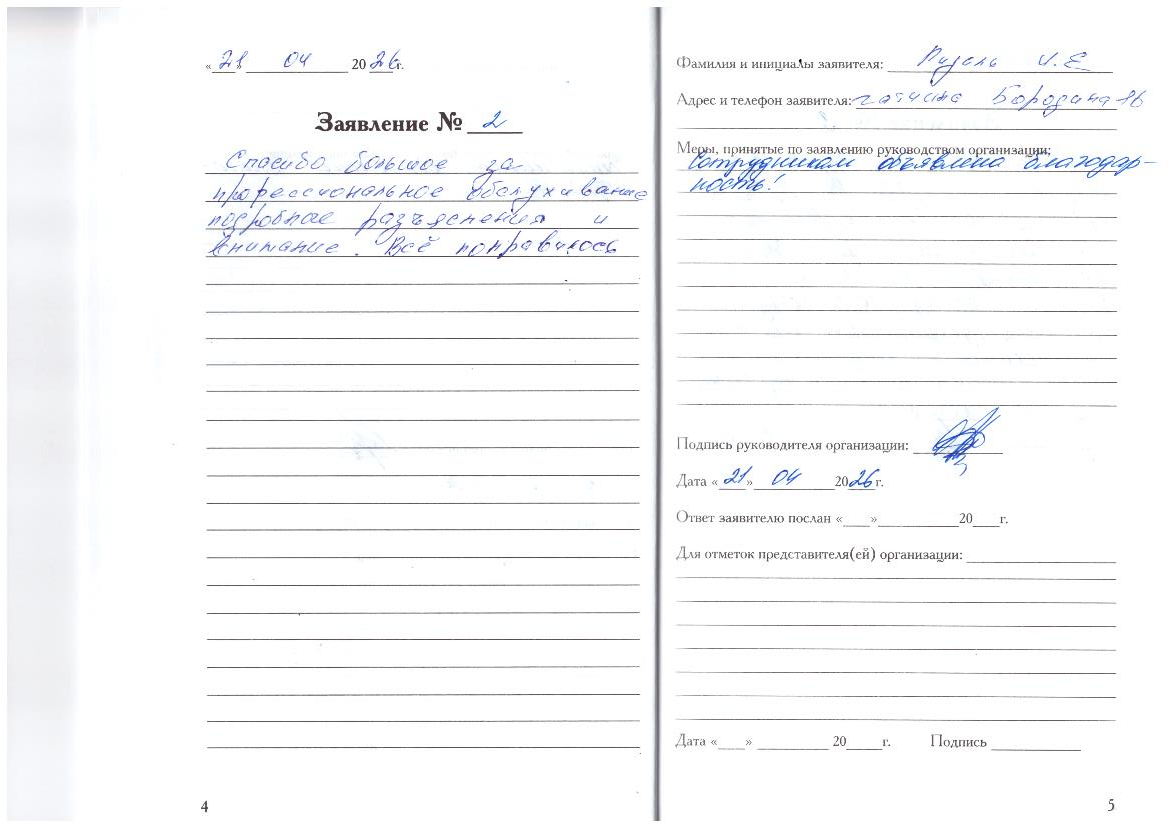 «21» 04 2026г.
Заявление № 2
Спасибо большое за
профессиональное обслуживание
подробные разъяснения и
внимание. Всё понравилось
4
Фамилия и инициалы заявителя: И.Е
Адрес и телефон заявителя: гатчина Бородина 16
Меры, принятые по заявлению руководством организации:
Сотрудникам объявлена благодар-
ность!
Подпись руководителя организации:
Дата «21» 04 2026г.
Ответ заявителю послан «____»____________20____г.
Для отметок представителя(ей) организации:
Дата «____» __________ 20_____г. Подпись ____________
5